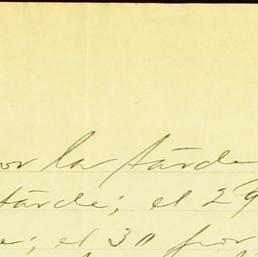 por la tarde
tarde; el 29
e; el 30 por